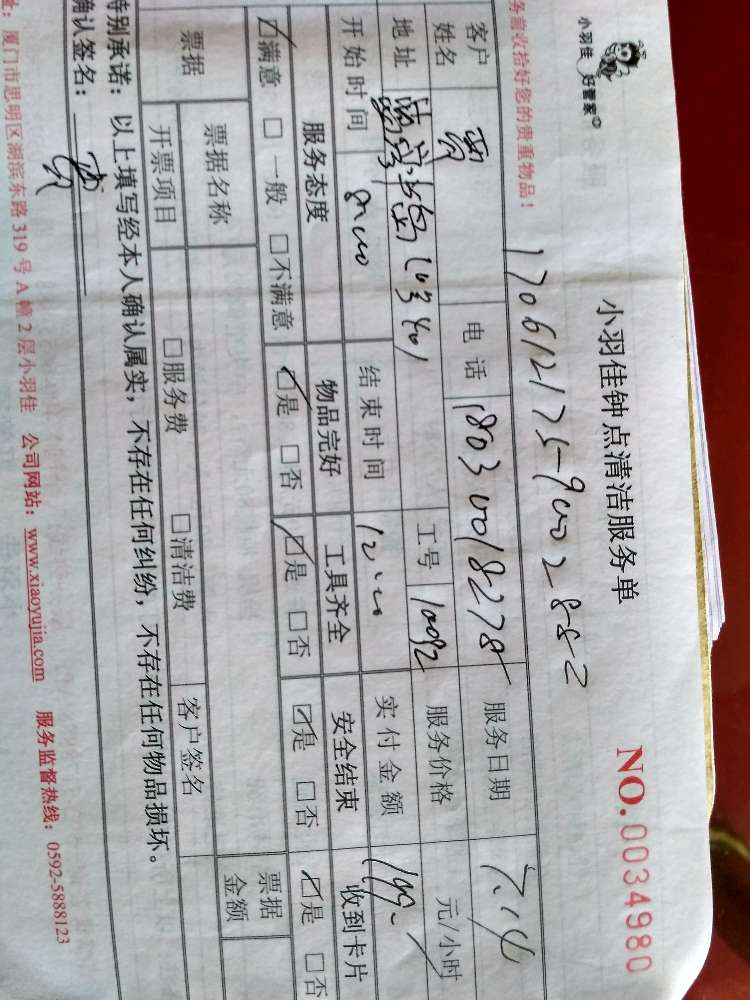 小羽佳 好管家
小羽佳钟点清洁服务单
NO.0034980
务前收拾好您的贵重物品!
客户姓名 贾 电话 18030018278 服务日期 7.14
地址 工号 10092 服务价格 元/小时
开始时间 8:00 结束时间 12:00 实付金额 199.
服务态度 物品完好 工具齐全 安全结束 收到卡片
☑满意 □一般 □不满意 ☑是 □否 ☑是 □否 ☑是 □否 ☑是 □否
票据 票据名称 票据金额
开票项目 □服务费 □清洁费 客户签名
特别承诺:以上填写经本人确认属实,不存在任何纠纷,不存在任何物品损坏。
确认签名:贾
址:厦门市思明区湖滨东路319号A幢2层小羽佳 公司网站:www.xiaoyujia.com 服务监督热线:0592-5888123